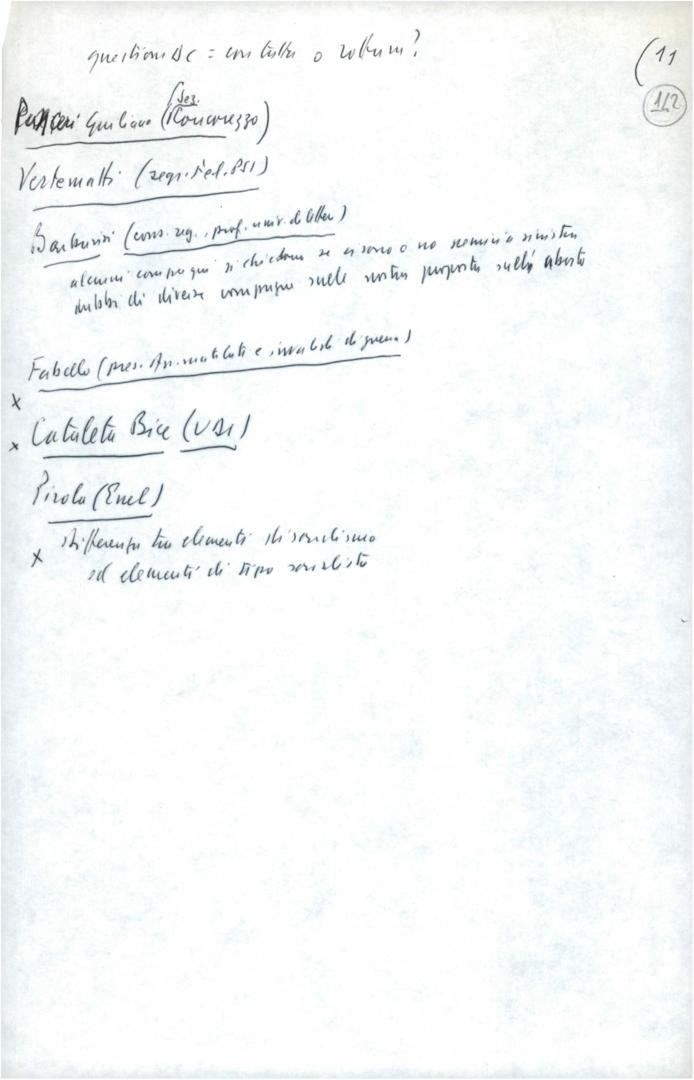 question DC = con tutta o rottura?
(11
112
Giuliano (Sez. Concorezzo)
Vertematti (segr. Fed. PSI)
Barbarini (cons. reg., prof. univ. di lettere)
alcuni compagni si chiedono se ci sono o no nemici a sinistra
dubbi di diverse compagne sulle nostre proposte sull'aborto
Fabello (pres. Ass. mutilati e invalidi di guerra)
x
x Cataleta Bice (UDI)
Pirola (Enel)
x differenza tra elementi di socialismo
ed elementi di tipo socialista